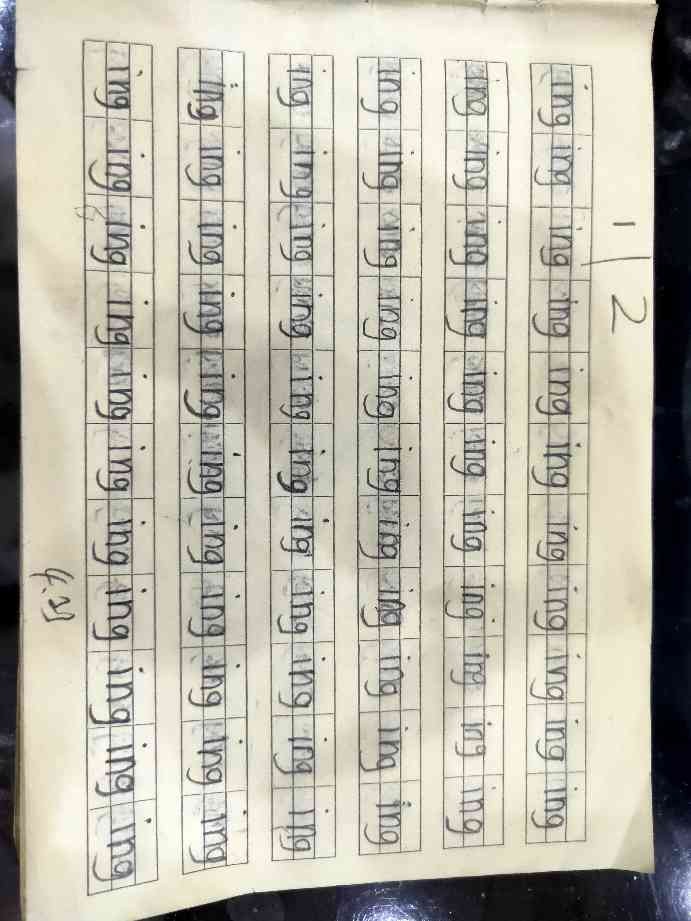 1/2
ing ing ing ing ing ing ing ing ing ing ing
ing ing ing ing ing ing ing ing ing ing ing
ing ing ing ing ing ing ing ing ing ing ing
ing ing ing ing ing ing ing ing ing ing ing
ing ing ing ing ing ing ing ing ing ing ing
ing ing ing ing ing ing ing ing ing ing ing